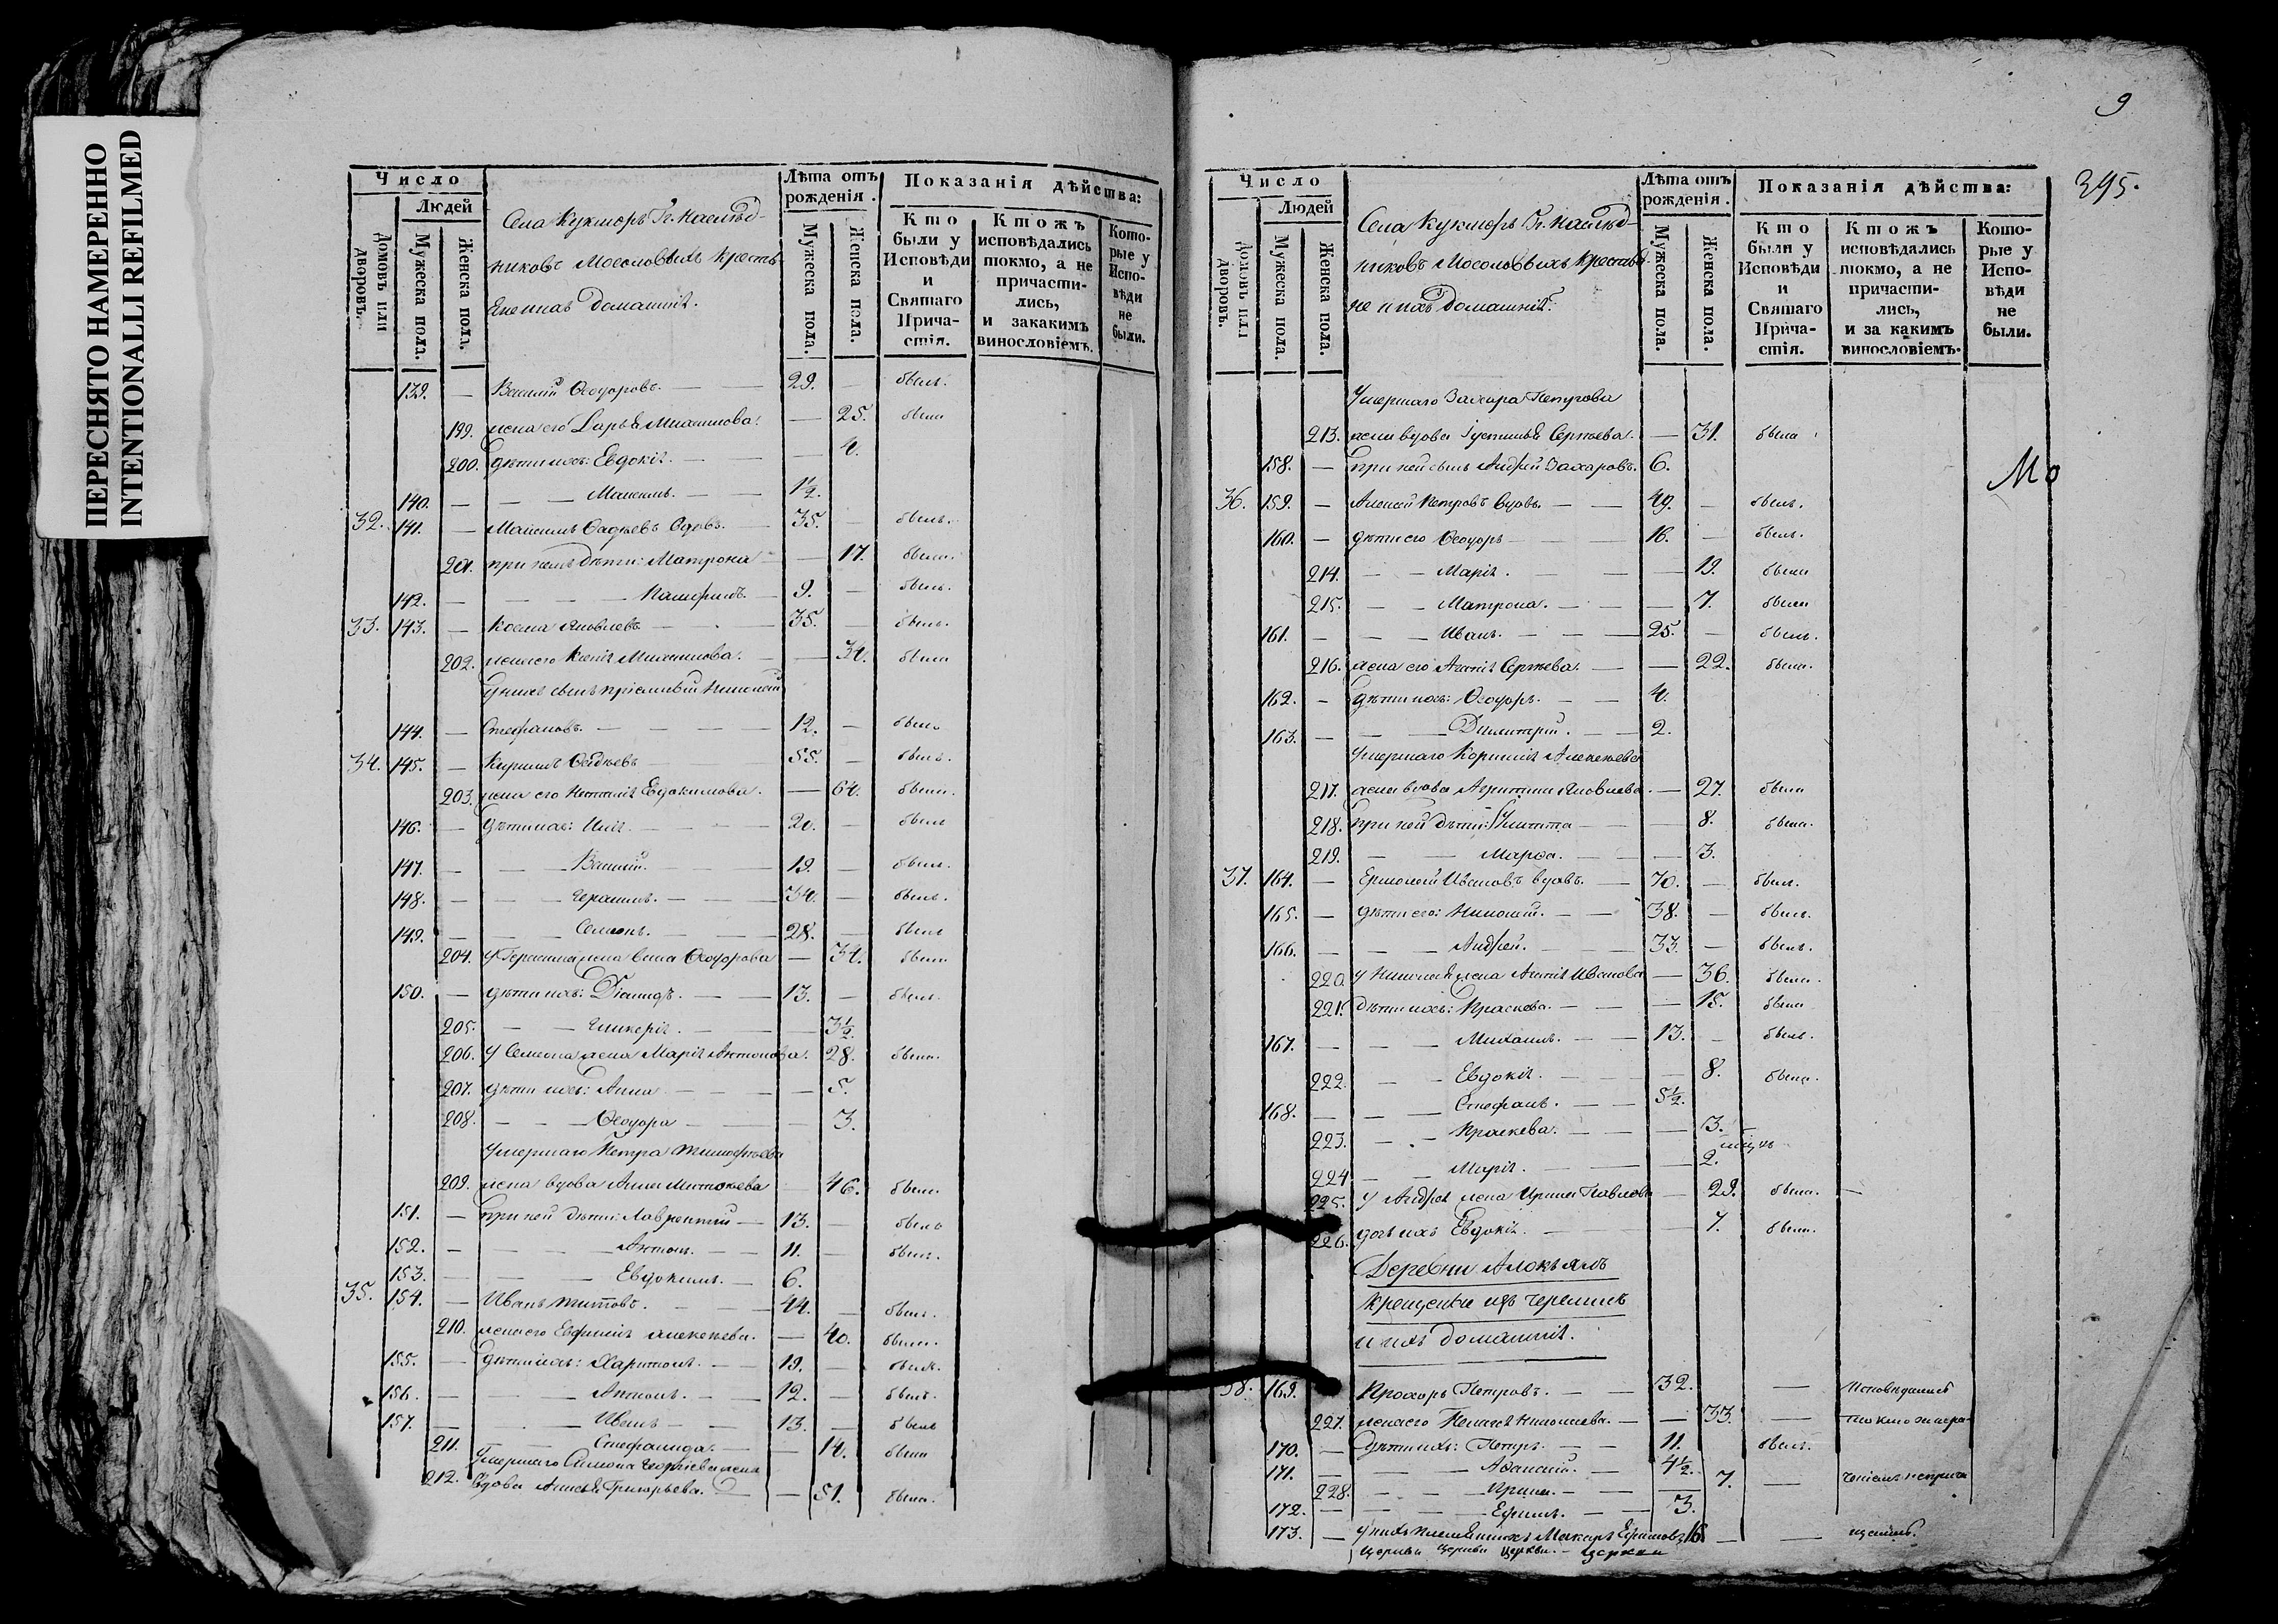 ПЕРЕСНЯТО НАМЕРЕННО
INTENTIONALLI REFILMED
Число
Людей
Домовъ или дворовъ.
Мужеска пола.
Женска пола.
Села Кукморъ Гг. Наслѣд-
никовъ Мосоловыхъ Кресть-
яне и ихъ домашнія.
Лѣта отъ рожденія.
Мужеска пола.
Женска пола.
Показанія дѣйства:
Кто были у Исповѣди и Святаго Причастія.
Ктожъ исповѣдались токмо, а не причастились, и закакимъ винословіемъ.
Которые у Исповѣди не были.
139. — Василій Ѳеодоровъ. — 29. — былъ.
199. жена его Дарья Михаилова. — 25. была
200. дѣти ихъ: Евдокія. — 4.
140. — Максимъ. — 1½.
32. 141. — Максимъ Ѳадѣевъ вдовъ. 35. былъ.
201. при немъ дѣти: Матрона — 17. была.
142. — Памфилъ. — 9. — былъ.
33. 143. — Косма Яковлевъ — 35. — былъ.
202. жена его Ксенія Михаилова. — 34. была
у нихъ сынъ пріемный Николай
144. — Стефановъ. — 12. — былъ
34. 145. — Кирилъ Ѳадѣевъ 55. — былъ.
203. жена его Наталія Евдокимова. — 64. была.
146. — дѣти ихъ: Илія. — 20. — былъ
147. — Василій. — 19. — былъ.
148. — Герасимъ. — 34. — былъ.
149. — Семенъ. — 28. — былъ
204. у Герасима жена Ѳеодорова — 34. была
150. — дѣти ихъ: Діомидъ. — 13. — былъ.
205. — Гликерія. — 3½.
206. у Семена жена Марія Антонова. 28. была.
207. дѣти ихъ: Анна — 5.
208. — Ѳеодора — 3.
Умершаго Петра Тимофѣева
209. жена вдова Анна — 46. была
151. — при ней дѣти: Лаврентій — 13. — былъ
152. — Антонъ. — 11. — былъ.
153. — Евдокимъ. — 6.
35. 154. — Иванъ Титовъ. — 44. — былъ.
210. жена его Евфимія Алексѣева. — 40. была.
155. — дѣти ихъ: Харитонъ. — 19. — былъ.
156. — Антонъ. — 12. — былъ.
157. — Иванъ — 13. — былъ
211. — Стефанида. — 14. была
Умершаго Симона Георгіева жена
212. вдова Григорьева. — 51. была.
9
395.
Число
Людей
Домовъ или дворовъ.
Мужеска пола.
Женска пола.
Села Кукморъ Гг. Наслѣд-
никовъ Мосоловыхъ Крестья-
не и ихъ домашнія.
Лѣта отъ рожденія.
Мужеска пола.
Женска пола.
Показанія дѣйства:
Кто были у Исповѣди и Святаго Причастія.
Ктожъ исповѣдались токмо, а не причастились, и за какимъ винословіемъ.
Которые у Исповѣди не были.
Умершаго Захара Петрова
213. жена вдова Іустинья Сергѣева. — 31. была
158. — при ней сынъ Андрей Захаровъ. 6.
Мо
36. 159. — Алексей Петровъ вдовъ. — 49. — былъ.
160. — дѣти его Ѳеодоръ — 16. — былъ.
214. — Марія. — 19. была
215. — Матрона. — 7. была
161. — Иванъ. — 25. — былъ.
216. жена его Сергѣева. — 22. была.
162. — дѣти ихъ: Ѳеодоръ. — 4.
163. — Димитрій. — 2.
Умершаго Корнилія Алексѣева
217. жена вдова Агрипина Яковлева. — 27. была
218. при ней дѣти: — 8. была.
219. — Марѳа. — 3.
37. 164. — Ермолай Ивановъ вдовъ. — 70. — былъ.
165. — дѣти его: Николай. — 38. — былъ.
166. — Андрей. — 33. — былъ.
220. у Николая жена Иванова — 36. была.
221. дѣти ихъ: Праскева. — 15. была
167. — Михаилъ. — 13. — былъ.
222. — Евдокія. — 8. была.
168. — Стефанъ. — 5½.
223. — Праскева. — 3.
224 — Марія. — 2.
225. у Андрея жена Ирина Павлова — 29. была. —
226. дочь ихъ Евдокія. — 7. была.
Деревни Алокъ ялъ
крещены изъ черемисъ
и ихъ домашнія.
38. 169. Прохоръ Петровъ. — 32. — Исповѣдался
227. жена его Пелагея Николаева. — 33. — токмо
170. — дѣти ихъ: Петръ. — 11. былъ.
171. — Аѳанасій. — 4½.
228. — Ирина. — 7. —
172. — Ефимъ. — 3.
173. — у нихъ племянникъ Макаръ Ефимовъ 16 — —
церкви церкви церкви. — церкви